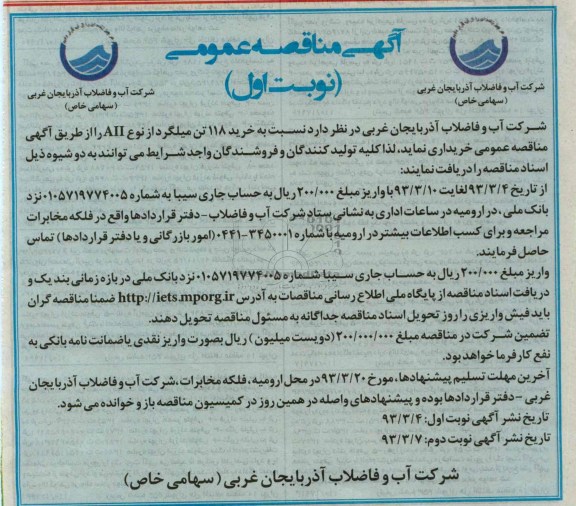 آگهی مناقصه عمومی
(نوبت اول)
شرکت آب و فاضلاب آذربایجان غربی
(سهامی خاص)
شرکت آب و فاضلاب آذربایجان غربی
(سهامی خاص)
شرکت آب و فاضلاب آذربایجان غربی در نظر دارد نسبت به خرید ۱۱۸ تن میلگرد از نوع AII را از طریق آگهی
مناقصه عمومی خریداری نماید، لذا کلیه تولید کنندگان و فروشندگان واجد شرایط می توانند به دو شیوه ذیل
اسناد مناقصه را دریافت نمایند:
از تاریخ ۹۳/۳/۴ لغایت ۹۳/۳/۱۰ با واریز مبلغ ۲۰۰/۰۰۰ ریال به حساب جاری سیبا به شماره ۰۱۰۵۷۱۹۷۷۴۰۰۵ نزد
بانک ملی، در ارومیه در ساعات اداری به نشانی ستاد شرکت آب و فاضلاب - دفتر قراردادها واقع در فلکه مخابرات
مراجعه و برای کسب اطلاعات بیشتر در ارومیه با شماره ۳۴۵۰۰۰۱-۰۴۴۱ (امور بازرگانی و یا دفتر قراردادها) تماس
حاصل فرمایند.
واریز مبلغ ۲۰۰/۰۰۰ ریال به حساب جاری سیبا شماره ۰۱۰۵۷۱۹۷۷۴۰۰۵ نزد بانک ملی در بازه زمانی بند یک و
دریافت اسناد مناقصه از پایگاه ملی اطلاع رسانی مناقصات به آدرس http://iets.mporg.ir ضمنا مناقصه گران
باید فیش واریزی را روز تحویل اسناد مناقصه جداگانه به مسئول مناقصه تحویل دهند.
تضمین شرکت در مناقصه مبلغ ۲۰۰/۰۰۰/۰۰۰ (دویست میلیون) ریال بصورت واریز نقدی یا ضمانت نامه بانکی به
نفع کارفرما خواهد بود.
آخرین مهلت تسلیم پیشنهادها، مورخ ۹۳/۳/۲۰ در محل ارومیه، فلکه مخابرات، شرکت آب و فاضلاب آذربایجان
غربی - دفتر قراردادها بوده و پیشنهادهای واصله در همین روز در کمیسیون مناقصه باز و خوانده می شود.
تاریخ نشر آگهی نوبت اول: ۹۳/۳/۴
تاریخ نشر آگهی نوبت دوم: ۹۳/۳/۷
شرکت آب و فاضلاب آذربایجان غربی (سهامی خاص)